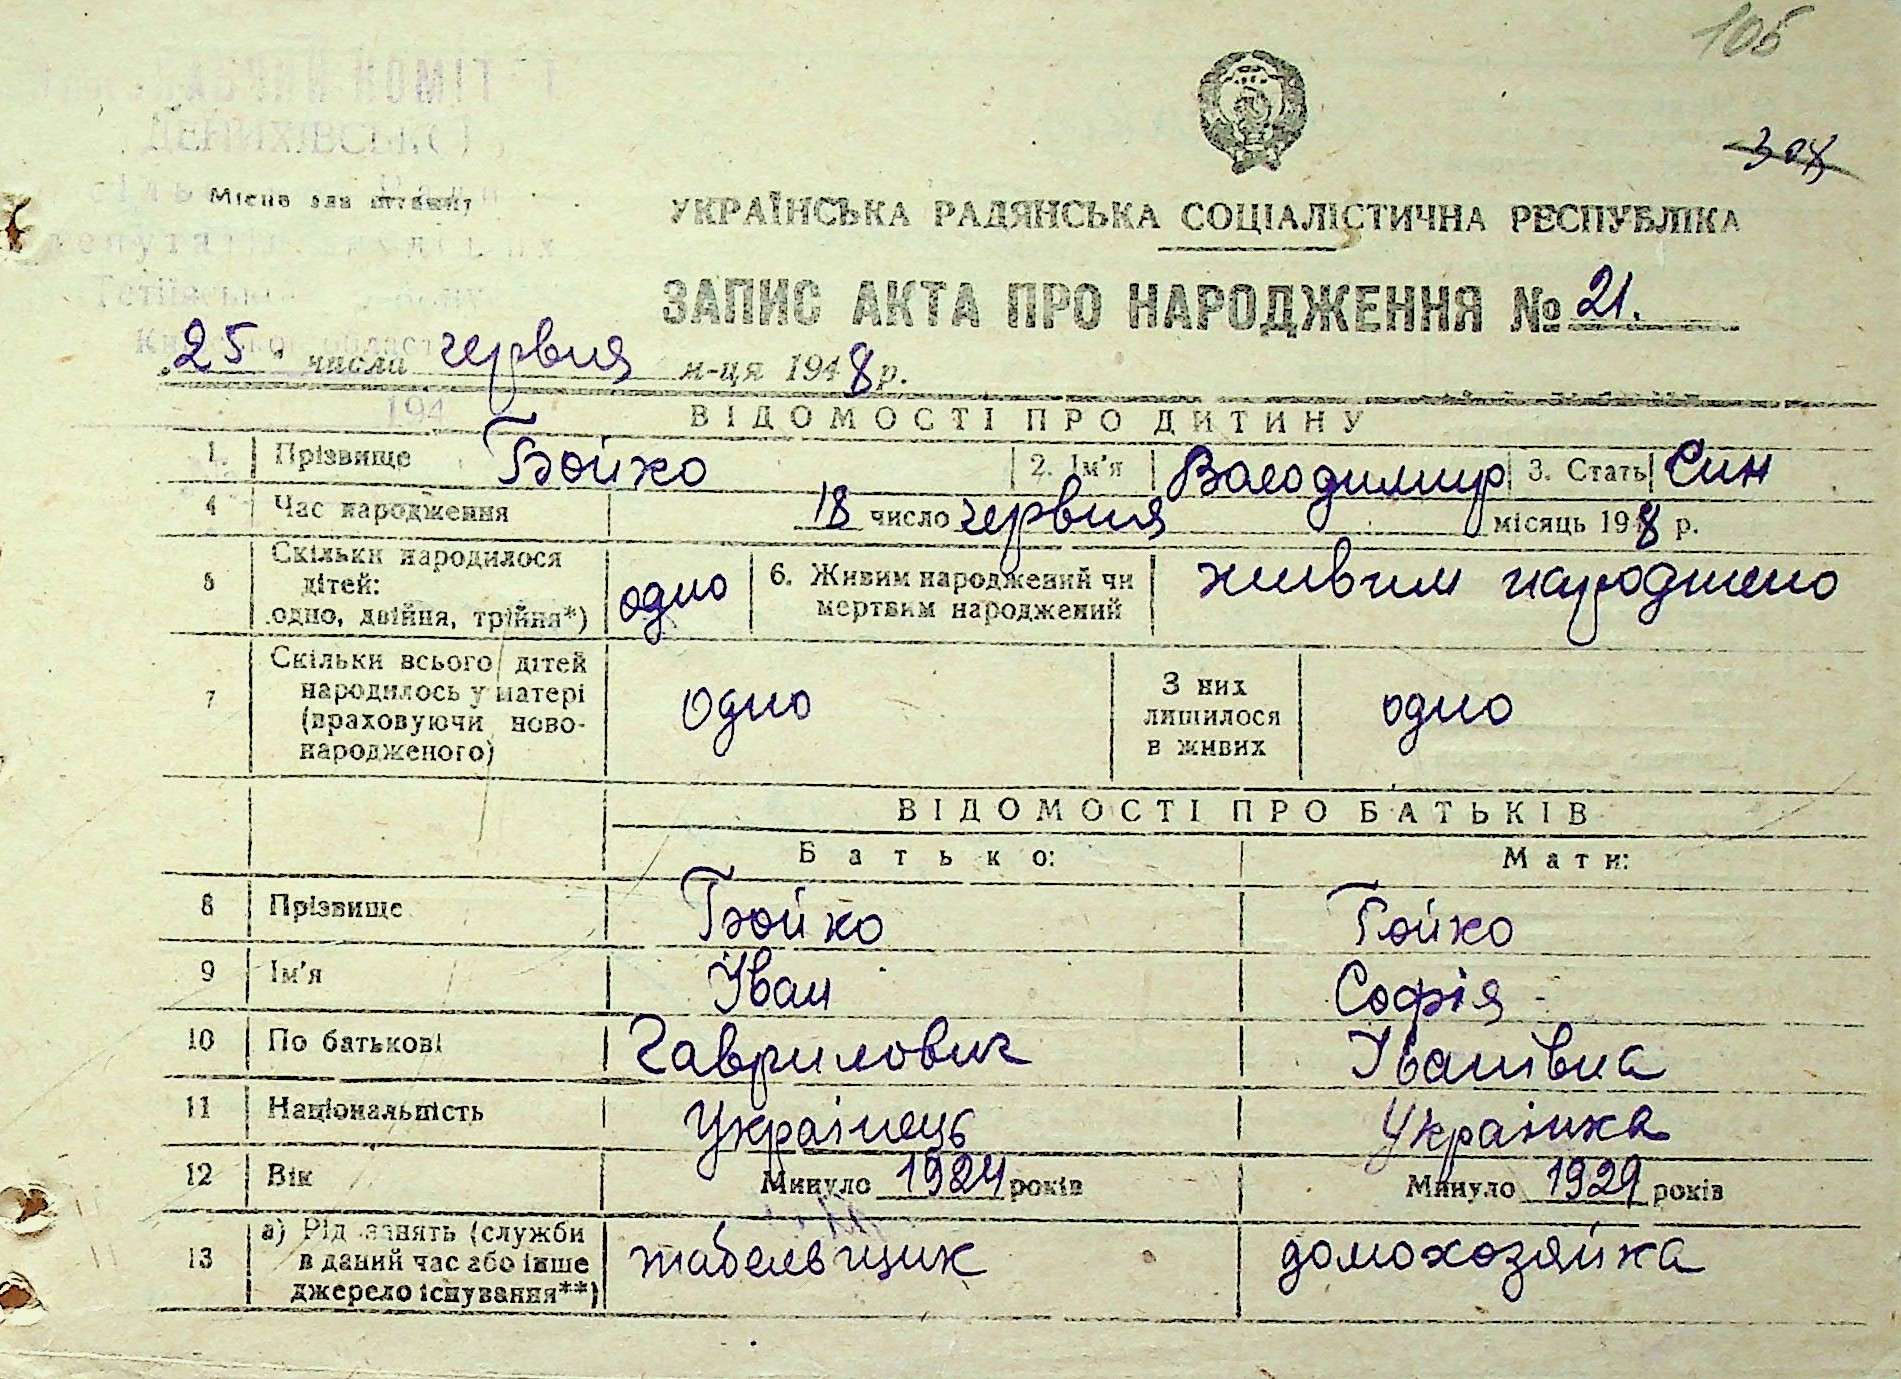 106
308
Місце для штампу
УКРАЇНСЬКА РАДЯНСЬКА СОЦІАЛІСТИЧНА РЕСПУБЛІКА
ЗАПИС АКТА ПРО НАРОДЖЕННЯ № 21.
25 " числа червня м-ця 1948 р.
194
ВІДОМОСТІ ПРО ДИТИНУ
1. Прізвище Бойко 2. Ім'я Володимир 3. Стать Син
4 Час народження 18 число червня місяць 1948 р.
5 Скільки народилося дітей: одно, двійня, трійня*) одно 6. Живим народжений чи мертвим народжений живим народжено
7 Скільки всього дітей народилось у матері (враховуючи ново-народженого) одно З них лишилося в живих одно
ВІДОМОСТІ ПРО БАТЬКІВ
Батько: Мати:
8 Прізвище Бойко Бойко
9 Ім'я Іван Софія
10 По батькові Гаврилович Іванівна
11 Національність Українець Українка
12 Вік Минуло 1924 років Минуло 1929 років
13 а) Рід занять (служби в даний час або інше джерело існування**) табельщик домохозяйка